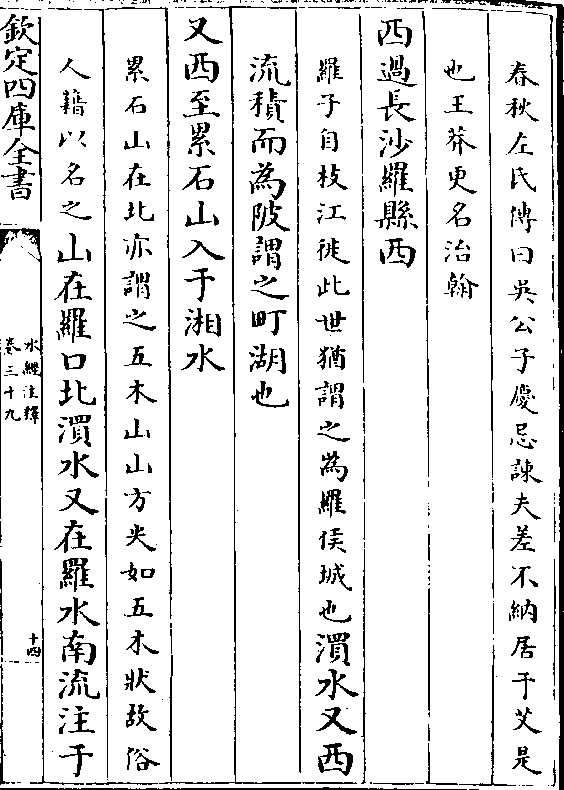 春秋左氏傳曰吳公子慶忌諫夫差不納居于艾是
也王莽更名治翰
西過長沙羅縣西
羅子自枝江徙此世猶謂之為羅侯城也湨水又西
流積而為陂謂之町湖也
又西至累石山入于湘水
累石山在北亦謂之五木山山方尖如五木狀故俗
人藉以名之山在羅口北湨水又在羅水南流注于
欽定四庫全書
水經注釋
卷三十九
十四